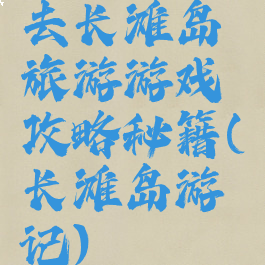 去长滩岛
旅游游戏
攻略秘籍(
长滩岛游
记)